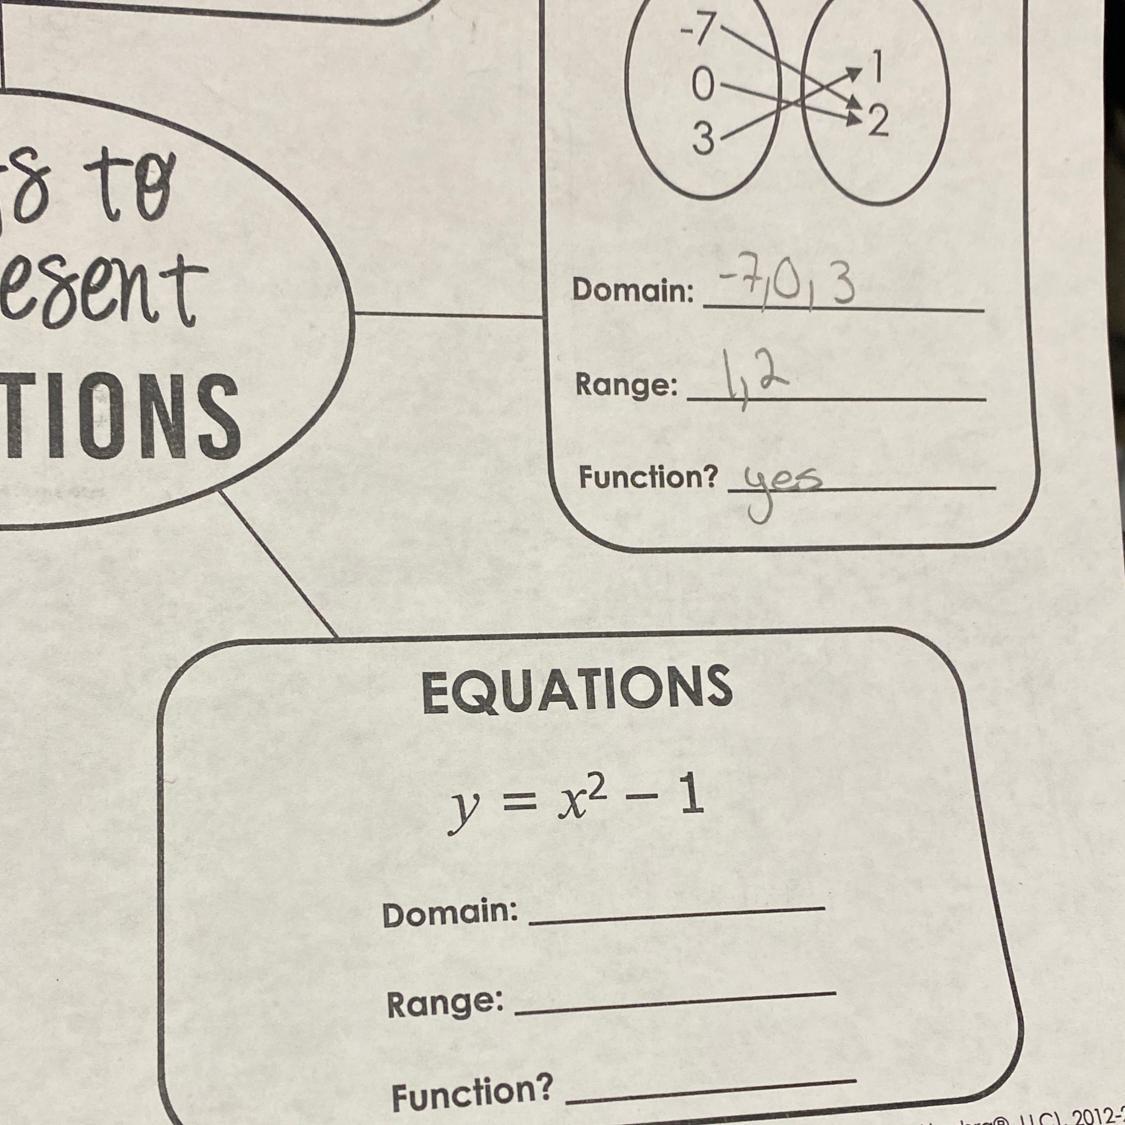 -7
0
3
1
2
s to
esent
TIONS
Domain: -7,0,3
Range: 1,2
Function? yes
EQUATIONS
y = x² − 1
Domain:
Range:
Function?
LLC), 2012-